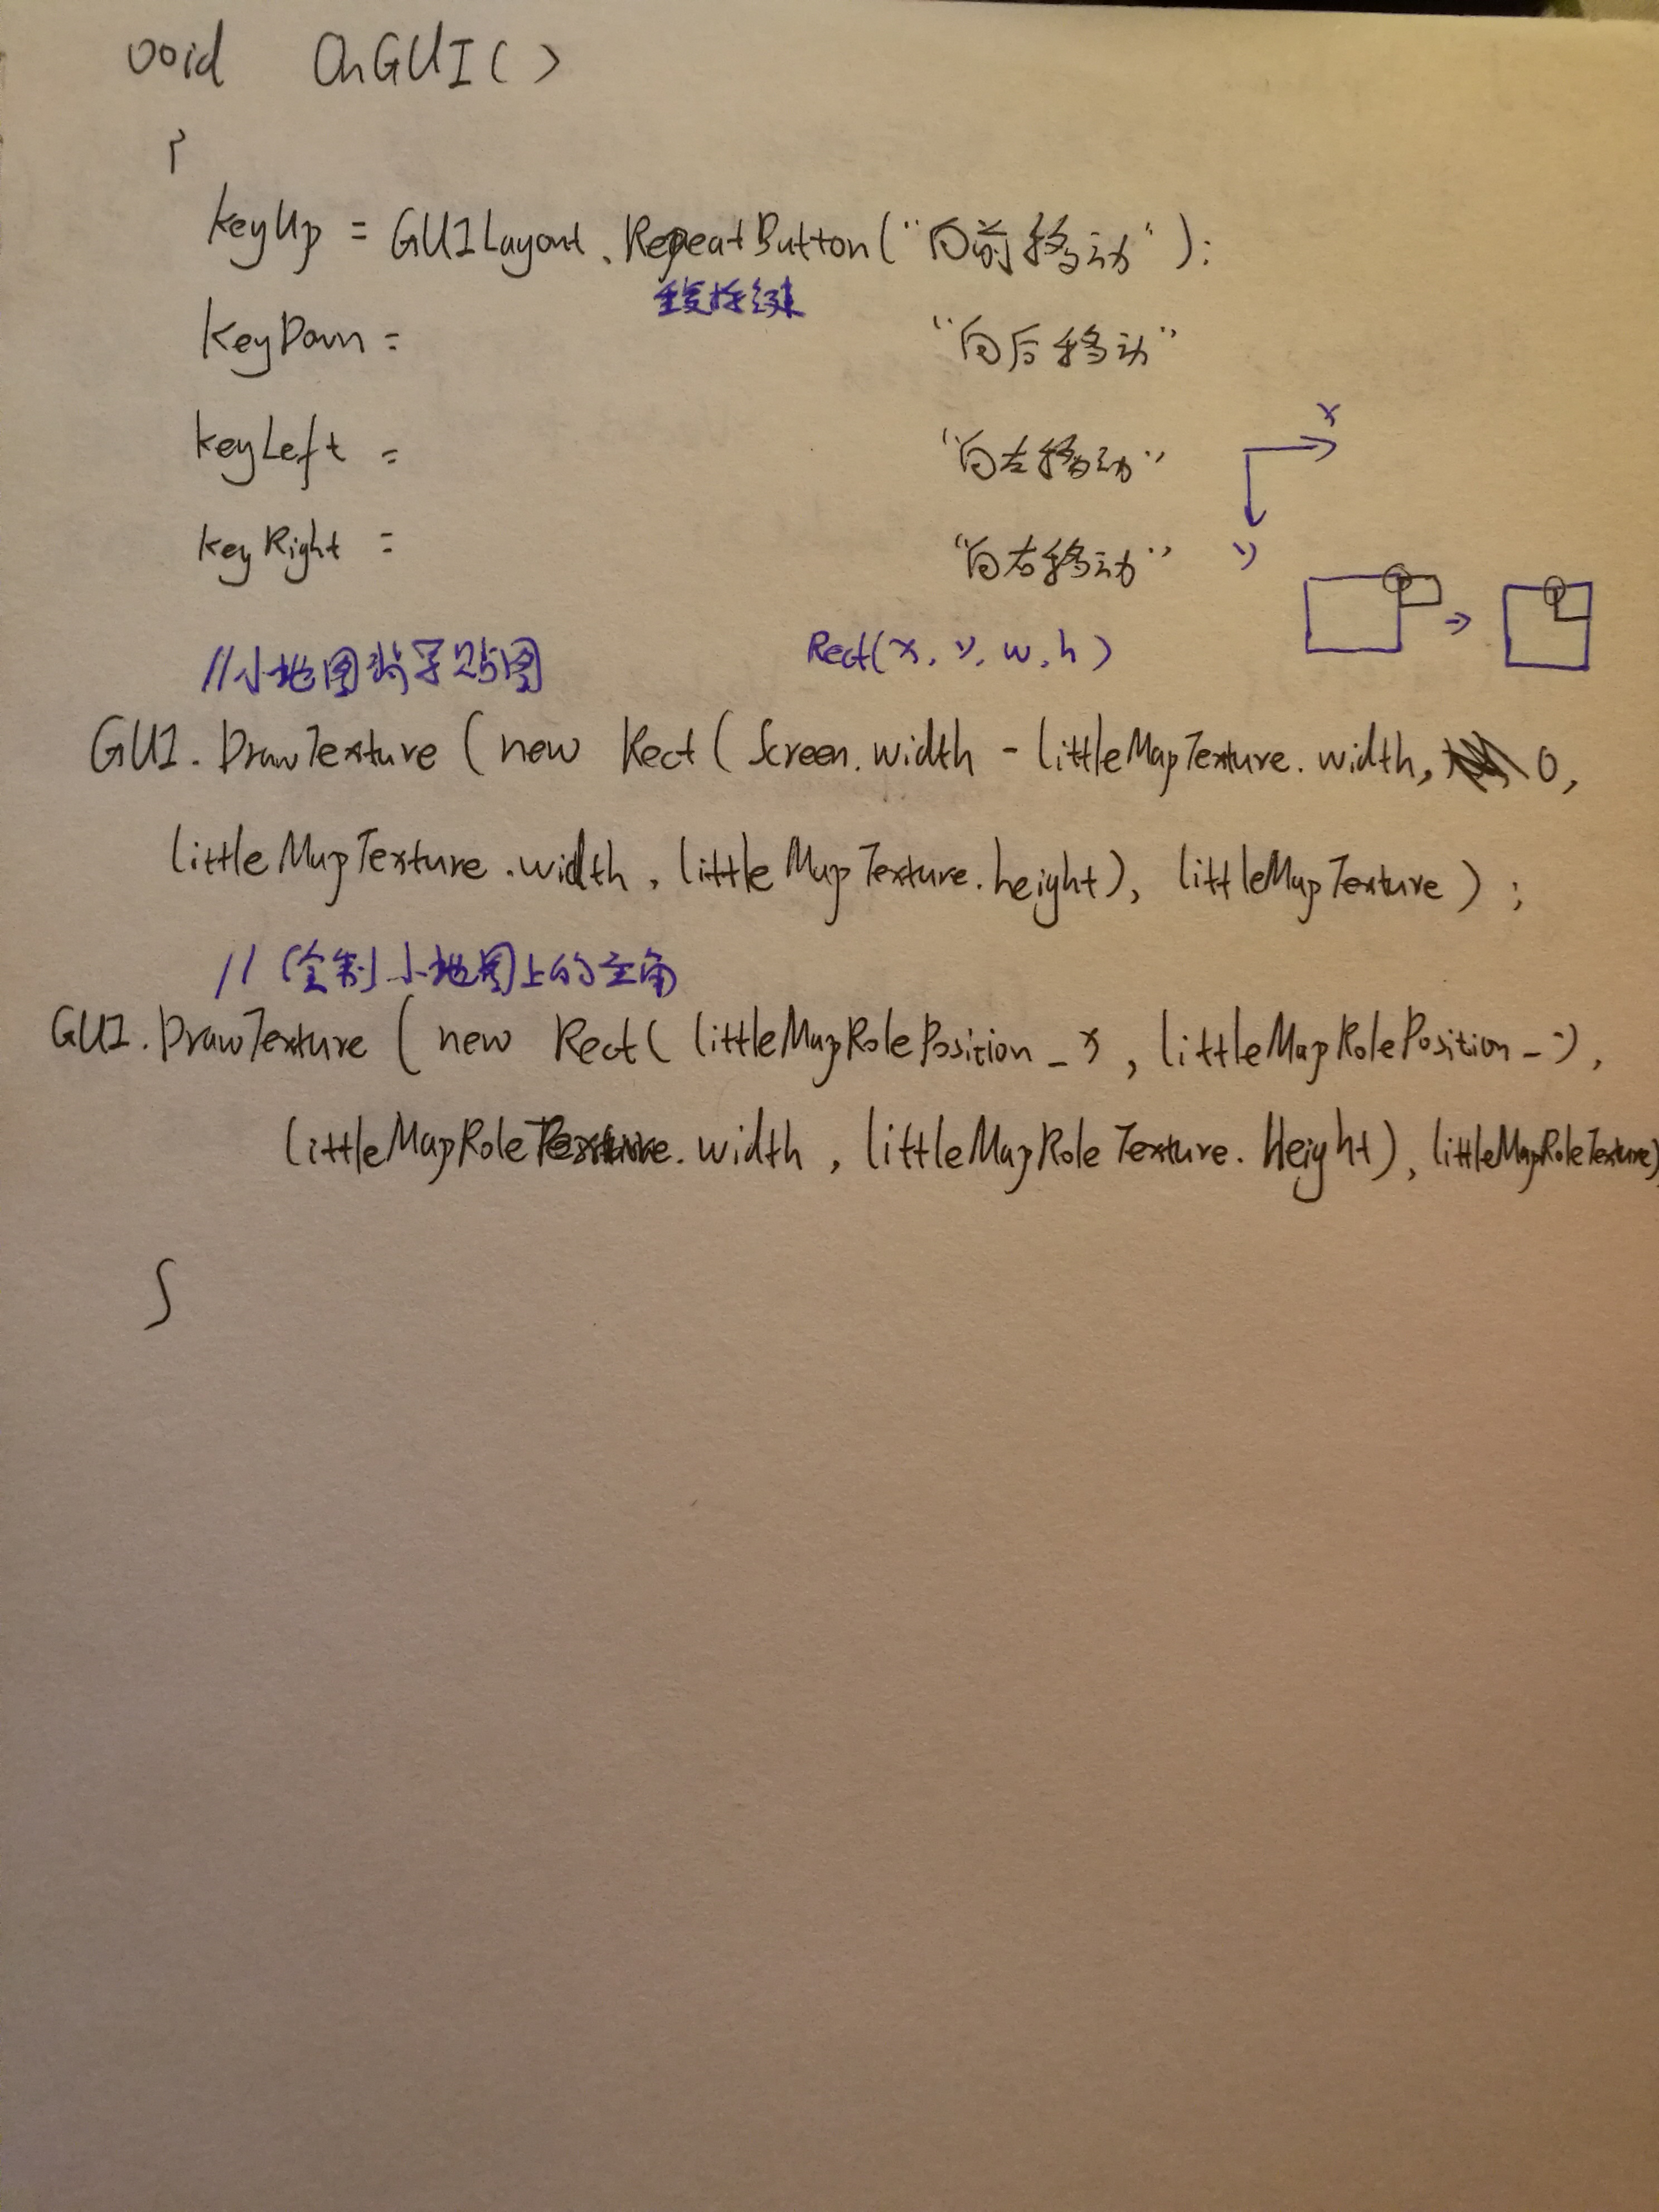 void OnGUI()
{
keyUp = GUILayout.RepeatButton("向前移动");
重复按键
keyDown = "向后移动"
keyLeft = "向左移动"
x
keyRight = "向右移动"
y
//小地图背景贴图 Rect(x, y, w, h)
GUI.DrawTexture (new Rect (Screen.width - littleMapTexture.width, 0,
littleMapTexture.width, littleMapTexture.height), littleMapTexture);
//绘制小地图上的主角
GUI.DrawTexture (new Rect( littleMapRolePosition_x, littleMapRolePosition_y,
littleMapRoleTexture.width, littleMapRoleTexture.Height), littleMapRoleTexture)
}